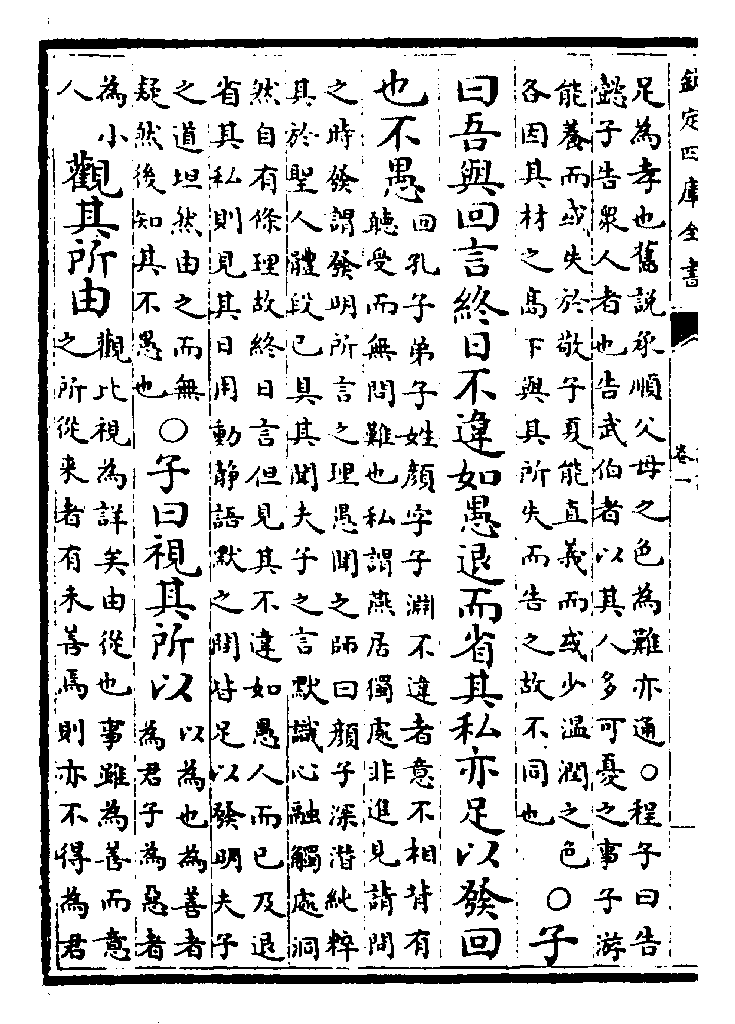 欽定四庫全書
卷一
足為孝也舊說承順父母之色為難亦通○程子曰告
懿子告衆人者也告武伯者以其人多可憂之事子游
能養而或失於敬子夏能直義而或少溫潤之色
各因其材之高下與其所失而告之故不同也
○子
曰吾與回言終日不違如愚退而省其私亦足以發回
也不愚
回孔子弟子姓顔字子淵不違者意不相背有
聽受而無問難也私謂燕居獨處非進見請問
之時發謂發明所言之理愚聞之師曰顔子深潛純粹
其於聖人體段已具其聞夫子之言默識心融觸處洞
然自有條理故終日言但見其不違如愚人而已及退
省其私則見其日用動靜語默之間皆足以發明夫子
之道坦然由之而無
疑然後知其不愚也
○子曰視其所以
以為也為善者
為君子為惡者
為小
人
觀其所由
觀比視為詳矣由從也事雖為善而意
之所從來者有未善焉則亦不得為君